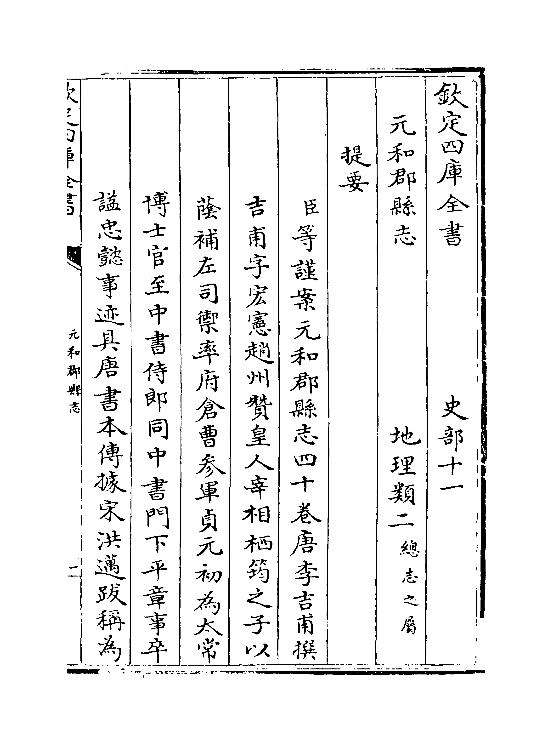 欽定四庫全書　史部十一
元和郡縣志　地理類二總志之屬
提要
臣等謹案元和郡縣志四十卷唐李吉甫撰
吉甫字宏憲趙州贊皇人宰相栖筠之子以
蔭補左司禦率府倉曹參軍貞元初為太常
博士官至中書侍郎同中書門下平章事卒
諡忠懿事迹具唐書本傳據宋洪邁跋稱為
欽定四庫全書
元和郡縣志
一